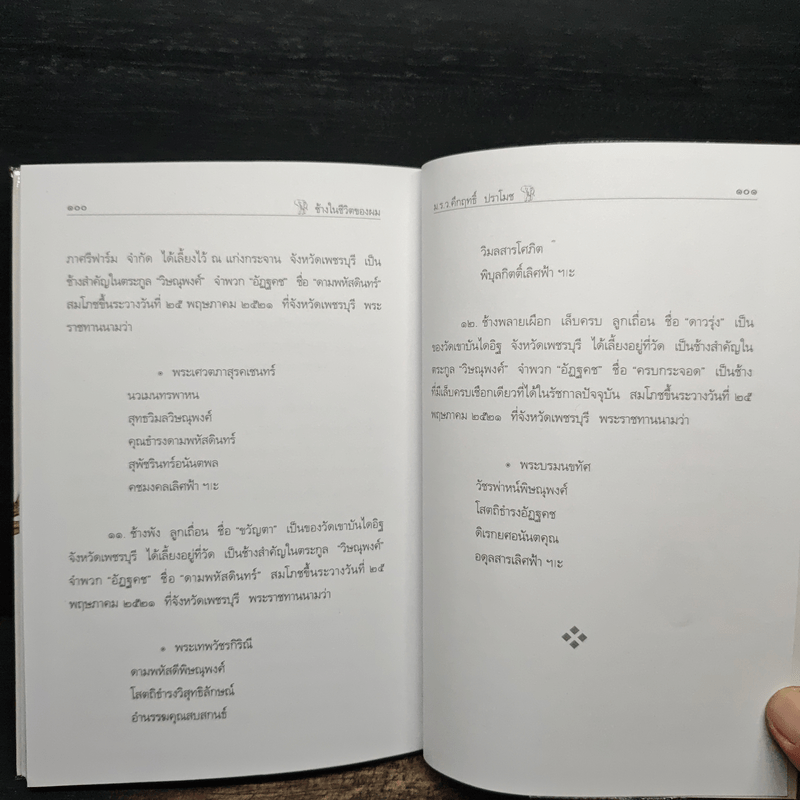 ๑๐๐
ช้างในชีวิตของผม
ภาศรีฟาร์ม จำกัด ได้เลี้ยงไว้ ณ แก่งกระจาน จังหวัดเพชรบุรี เป็น
ช้างสำคัญในตระกูล “วิษณุพงศ์” จำพวก “อัฏฐคช” ชื่อ “ดามพหัสดินทร์”
สมโภชขึ้นระวางวันที่ ๒๕ พฤษภาคม ๒๕๒๑ ที่จังหวัดเพชรบุรี พระ
ราชทานนามว่า
• พระเศวตภาสุรคเชนทร์
นวเมนทรพาหน
สุทธวิมลวิษณุพงศ์
คุณธำรงดามพหัสดินทร์
สุพัชรินทร์อนันตพล
คชมงคลเลิศฟ้า ฯ|ะ
๑๑. ช้างพัง ลูกเถื่อน ชื่อ “ขวัญตา” เป็นของวัดเขาบันไดอิฐ
จังหวัดเพชรบุรี ได้เลี้ยงอยู่ที่วัด เป็นช้างสำคัญในตระกูล “วิษณุพงศ์”
จำพวก “อัฏฐคช” ชื่อ “ดามพหัสดินทร์” สมโภชขึ้นระวางวันที่ ๒๕
พฤษภาคม ๒๕๒๑ ที่จังหวัดเพชรบุรี พระราชทานนามว่า
• พระเทพวัชรกิริณี
ดามพหัสดีพิษณุพงศ์
โสตถิธำรงวิสุทธิลักษณ์
อำนรรฆคุณสบสกนธ์
ม.ร.ว.คึกฤทธิ์ ปราโมช
๑๐๑
วิมลสารโศภิต
พิบุลกิตติ์เลิศฟ้า ฯ|ะ
๑๒. ช้างพลายเผือก เล็บครบ ลูกเถื่อน ชื่อ “ดาวรุ่ง” เป็น
ของวัดเขาบันไดอิฐ จังหวัดเพชรบุรี ได้เลี้ยงอยู่ที่วัด เป็นช้างสำคัญใน
ตระกูล “วิษณุพงศ์” จำพวก “อัฏฐคช” ชื่อ “ครบกระจอด” เป็นช้าง
ที่มีเล็บครบเชือกเดียวที่ได้ในรัชกาลปัจจุบัน สมโภชขึ้นระวางวันที่ ๒๕
พฤษภาคม ๒๕๒๑ ที่จังหวัดเพชรบุรี พระราชทานนามว่า
• พระบรมนขทัศ
วัชรพ่าหน์พิษณุพงศ์
โสตถิธำรงอัฏฐคช
ดิเรกยศอนันตคุณ
อดุลสารเลิศฟ้า ฯ|ะ